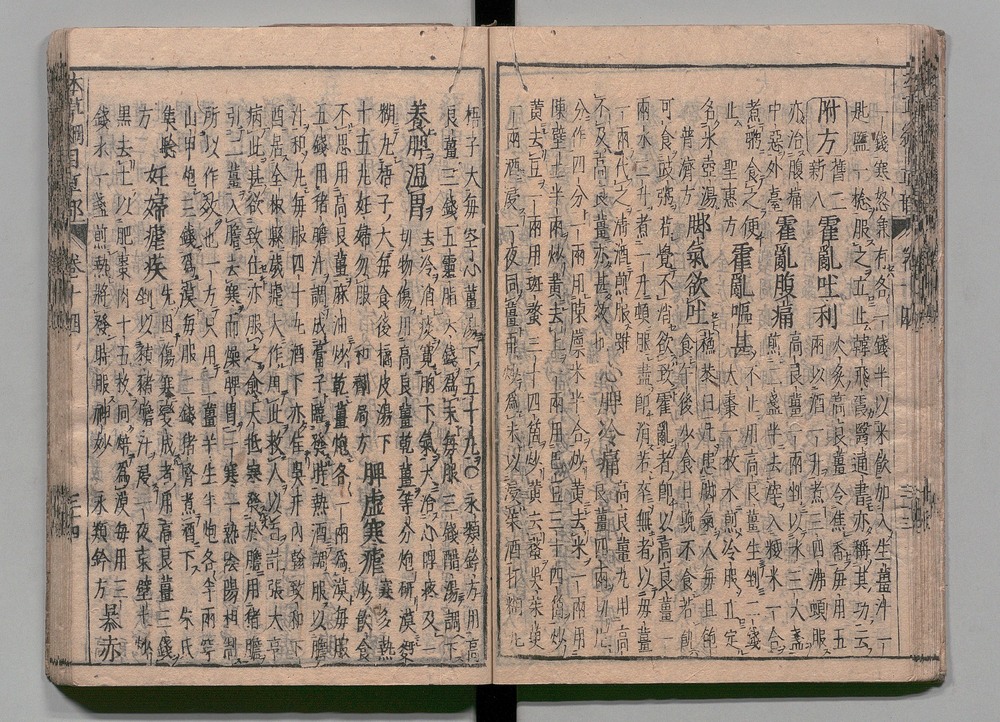 錢寒怒兼有各一錢半以米飲加入生薑汁一
匙鹽一捻服之立止韓飛霞醫通書亦稱其功云
附方 舊三新八 霍亂吐利 火炙高良薑令焦香每用五兩以酒一升煮三四沸頓服
亦治腹痛中惡外臺 霍亂腹痛 高良薑一兩剉以水三大盞煎二盞半去滓入粳米一合
煮粥食之便止 聖惠方 霍亂嘔甚 不止高良薑生剉二錢大棗一枚水煎冷服立定
名冰壺湯普濟方 腳氣欲吐 蘇恭曰凡患腳氣人每旦飽食午後少食日晚不食若飢
可食豉粥若覺不消欲致霍亂者即以高良薑一
兩水三升煮一升頓服盡即消若卒無者以母薑
一兩代之清酒煎服雖不及高良薑亦甚效也 心脾冷痛 高良薑丸用高良薑四兩切片
分作四分一兩用陳廩米半合炒黃去米一兩用
陳壁土半兩炒黃去土一兩用巴豆三十四箇炒
黃去豆一兩用斑蝥三十四箇炒黃去蝥吳茱萸
一兩酒浸一夜同薑再炒為末以浸茱酒打糊丸
梧子大每空心薑湯下五十丸○永類鈐方用高
良薑三錢五靈脂六錢為末每服三錢醋湯調下
養脾溫胃 去冷消痰寬胸下氣大治心脾疼及一切冷物傷用高良薑乾薑等分炮研末麪
糊丸梧子大每食後橘皮湯下十五丸妊婦勿服 和劑局方 脾虛寒瘧 寒多熱少飲食
不思用高良薑麻油炒乾薑炮各一兩為末每服
五錢用豬膽汁調成膏子臨發時熱酒調服以膽
汁和丸每服四十丸酒下亦佳吳幵內翰政和丁
酉居全椒縣歲瘧大作用此救人以百計張大亨
病此甚欲致仕亦服之愈大抵寒發於膽用豬膽
引二薑入膽去寒而燥脾胃一寒一熱陰陽相制
所以作效也一方只用二薑半生半炮各半兩穿
山甲炮三錢為末每服二錢豬腎煮酒下 朱氏
集驗方 妊婦瘧疾 先因傷寒變成者用高良薑三錢剉以豬豬膽汁浸一夜東壁土炒
黑去土以肥棗肉十五枚同焙為末每用三
錢水一盞煎熱將發時服神妙 永類鈐方 暴赤
本草綱目草部 卷十四 三十四